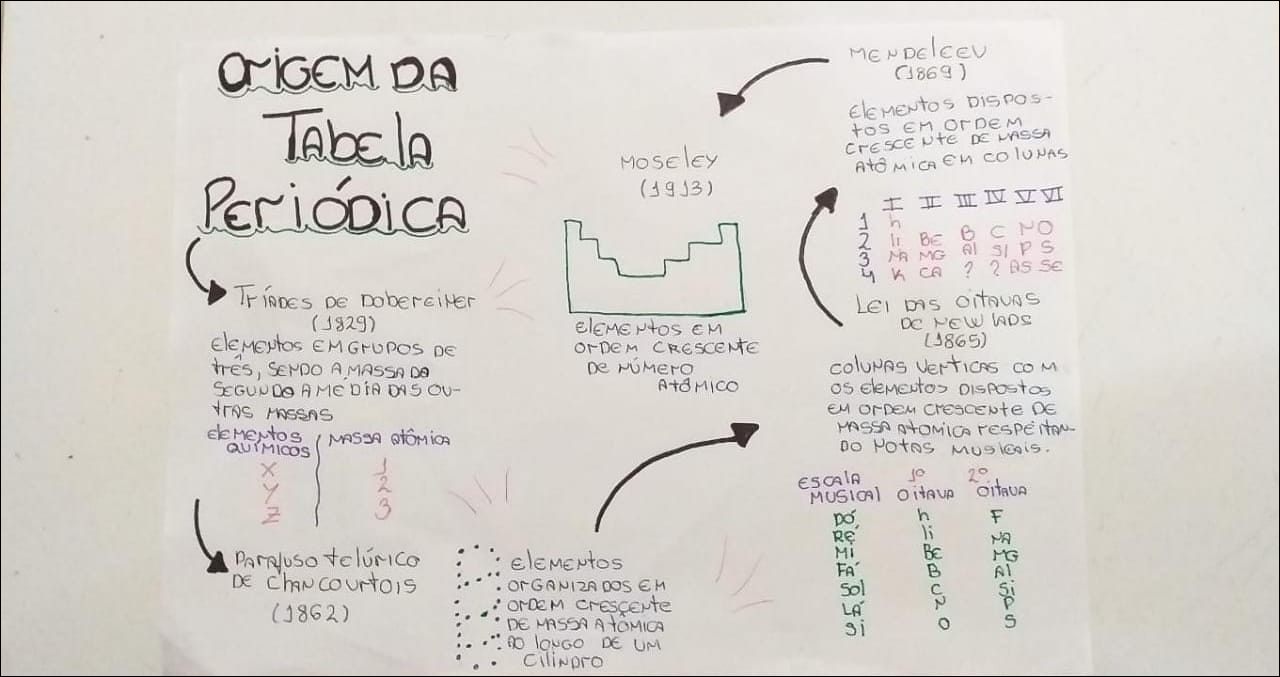 ORIGEM DA
Tabela
PERIÓDICA
TRÍADES DE DOBEREINER
(1829)
ELEMENTOS EM GRUPOS DE
TRÊS, SENDO A MASSA DO
SEGUNDO A MÉDIA DAS OU-
TRAS MASSAS
ELEMENTOS QUÍMICOS MASSA ATÔMICA
X 1
Y 2
Z 3
PARAFUSO TELÚRICO
DE CHANCOURTOIS
(1862)
ELEMENTOS
ORGANIZADOS EM
ORDEM CRESCENTE
DE MASSA ATÔMICA
AO LONGO DE UM
CILINDRO
LEI DAS OITAVAS
DE NEWLADS
(1865)
COLUNAS VERTICAS COM
OS ELEMENTOS DISPOSTOS
EM ORDEM CRESCENTE DE
MASSA ATOMICA RESPEITAN-
DO NOTAS MUSICAIS.
ESCALA MUSICAL 1º OITAVA 2º OITAVA
DÓ h F
RÉ li NA
MI BE MG
FÁ B Al
Sol C Si
LÁ N P
Si O S
MENDELEEV
(1869)
ELEMENTOS DISPOS-
TOS EM ORDEM
CRESCENTE DE MASSA
ATÔMICA EM COLUNAS
I II III IV V VI
1 h
2 li BE B C N O
3 NA MG Al SI P S
4 K CA ? ? AS SE
MOSELEY
(1913)
ELEMENTOS EM
ORDEM CRESCENTE
DE NÚMERO
ATÔMICO